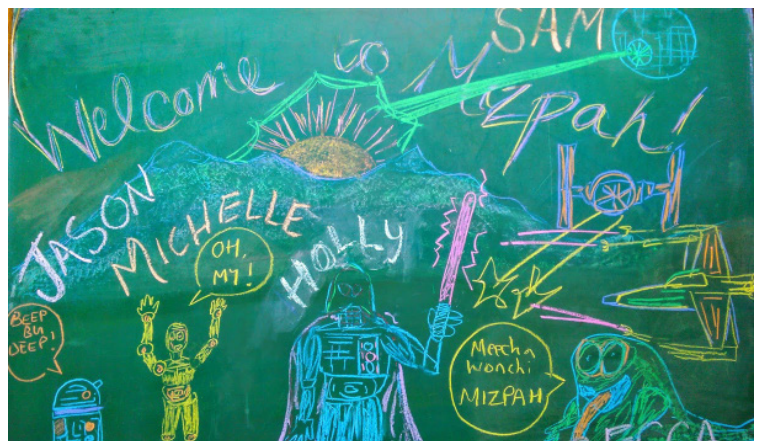 SAM
Welcome to Mizpah!
JASON
MICHELLE
HOLLY
OH,
MY!
BEEP
BU
DEEP!
Meecha
Wonchi
MIZPAH